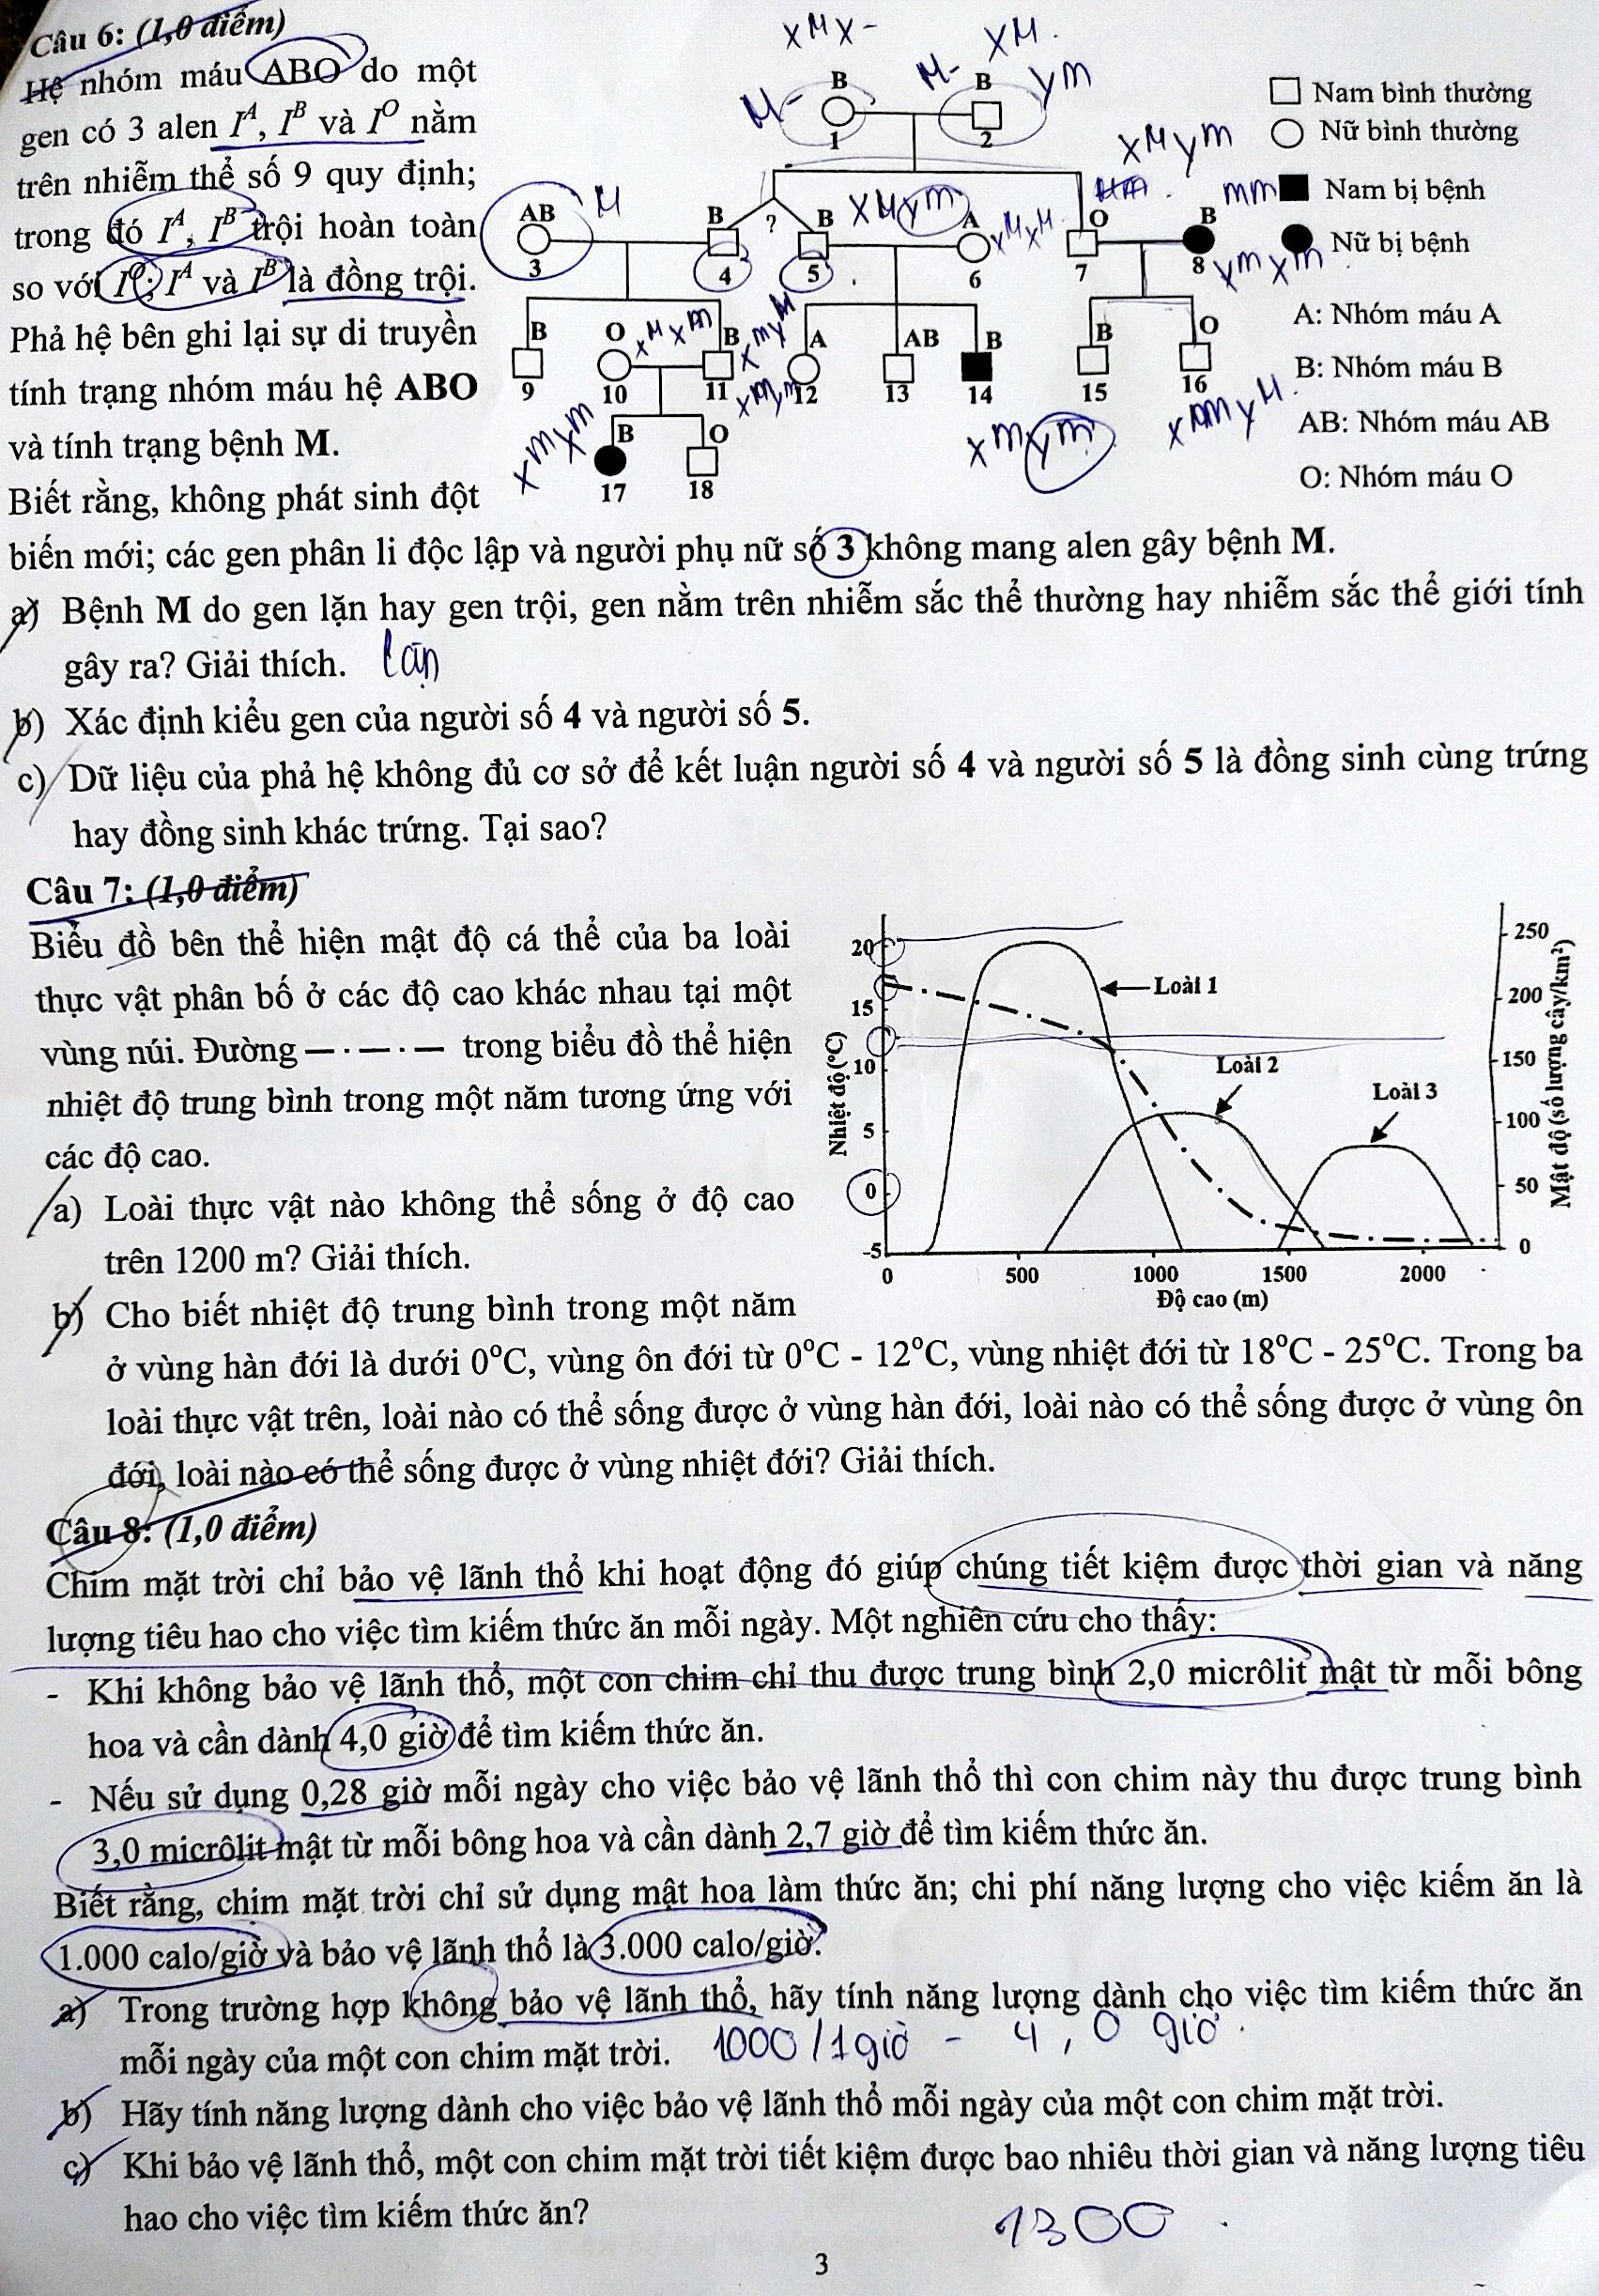 Câu 6: (1,0 điểm)
Hệ nhóm máu ABO do một
gen có 3 alen Iᴬ, Iᴮ và Iᴼ nằm
trên nhiễm thể số 9 quy định;
trong đó Iᴬ, Iᴮ trội hoàn toàn
so với Iᴼ; Iᴬ và Iᴮ là đồng trội.
Phả hệ bên ghi lại sự di truyền
tính trạng nhóm máu hệ ABO
và tính trạng bệnh M.
Biết rằng, không phát sinh đột
XᴹX-
Xᴹ
Yᵐ
M-
M-
B
B
1
2
XᴹYᵐ
M
AB
B
?
B
XᴹYᵐ
A
XᴹXᴹ
O
B
3
4
5
6
7
8
XᵐXᵐ
B
O
XᴹXᵐ
B
XᵐYᴹ
A
AB
B
B
O
9
10
11
XᵐYᵐ
12
13
14
15
16
XᵐXᵐ
B
O
XᵐYᵐ
XᵐYᴹ
17
18
Nam bình thường
Nữ bình thường
mm
Nam bị bệnh
Nữ bị bệnh
A: Nhóm máu A
B: Nhóm máu B
AB: Nhóm máu AB
O: Nhóm máu O
biến mới; các gen phân li độc lập và người phụ nữ số 3 không mang alen gây bệnh M.
a) Bệnh M do gen lặn hay gen trội, gen nằm trên nhiễm sắc thể thường hay nhiễm sắc thể giới tính
gây ra? Giải thích. lặn
b) Xác định kiểu gen của người số 4 và người số 5.
c) Dữ liệu của phả hệ không đủ cơ sở để kết luận người số 4 và người số 5 là đồng sinh cùng trứng
hay đồng sinh khác trứng. Tại sao?
Câu 7: (1,0 điểm)
Biểu đồ bên thể hiện mật độ cá thể của ba loài
thực vật phân bố ở các độ cao khác nhau tại một
vùng núi. Đường — · — · — trong biểu đồ thể hiện
nhiệt độ trung bình trong một năm tương ứng với
các độ cao.
a) Loài thực vật nào không thể sống ở độ cao
trên 1200 m? Giải thích.
b) Cho biết nhiệt độ trung bình trong một năm
Nhiệt độ (°C)
20
15
10
5
0
-5
Loài 1
Loài 2
Loài 3
250
200
150
100
50
0
Mật độ (số lượng cây/km²)
0 500 1000 1500 2000
Độ cao (m)
ở vùng hàn đới là dưới 0°C, vùng ôn đới từ 0°C - 12°C, vùng nhiệt đới từ 18°C - 25°C. Trong ba
loài thực vật trên, loài nào có thể sống được ở vùng hàn đới, loài nào có thể sống được ở vùng ôn
đới, loài nào có thể sống được ở vùng nhiệt đới? Giải thích.
Câu 8: (1,0 điểm)
Chim mặt trời chỉ bảo vệ lãnh thổ khi hoạt động đó giúp chúng tiết kiệm được thời gian và năng
lượng tiêu hao cho việc tìm kiếm thức ăn mỗi ngày. Một nghiên cứu cho thấy:
- Khi không bảo vệ lãnh thổ, một con chim chỉ thu được trung bình 2,0 micrôlit mật từ mỗi bông
hoa và cần dành 4,0 giờ để tìm kiếm thức ăn.
- Nếu sử dụng 0,28 giờ mỗi ngày cho việc bảo vệ lãnh thổ thì con chim này thu được trung bình
3,0 micrôlit mật từ mỗi bông hoa và cần dành 2,7 giờ để tìm kiếm thức ăn.
Biết rằng, chim mặt trời chỉ sử dụng mật hoa làm thức ăn; chi phí năng lượng cho việc kiếm ăn là
1.000 calo/giờ và bảo vệ lãnh thổ là 3.000 calo/giờ.
a) Trong trường hợp không bảo vệ lãnh thổ, hãy tính năng lượng dành cho việc tìm kiếm thức ăn
mỗi ngày của một con chim mặt trời. 1000 / 1 giờ - 4,0 giờ.
b) Hãy tính năng lượng dành cho việc bảo vệ lãnh thổ mỗi ngày của một con chim mặt trời.
c) Khi bảo vệ lãnh thổ, một con chim mặt trời tiết kiệm được bao nhiêu thời gian và năng lượng tiêu
hao cho việc tìm kiếm thức ăn? 1300.
3